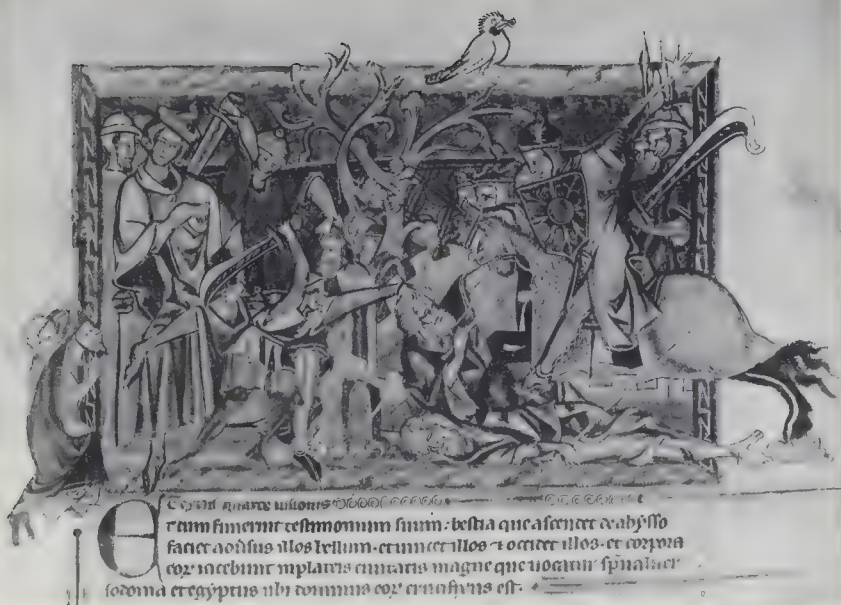 quarte uisionis
Et cum finierint testimonium suum · bestia que ascendet de abysso
faciet aduersus illos bellum · et uincet illos ⁊ occidet illos · et corpora
eorꝫ iacebunt in plateis ciuitatis magne que uocatur sp̄ualiter
sodoma et egyptus ubi dominus eorꝫ crucifixus est ·